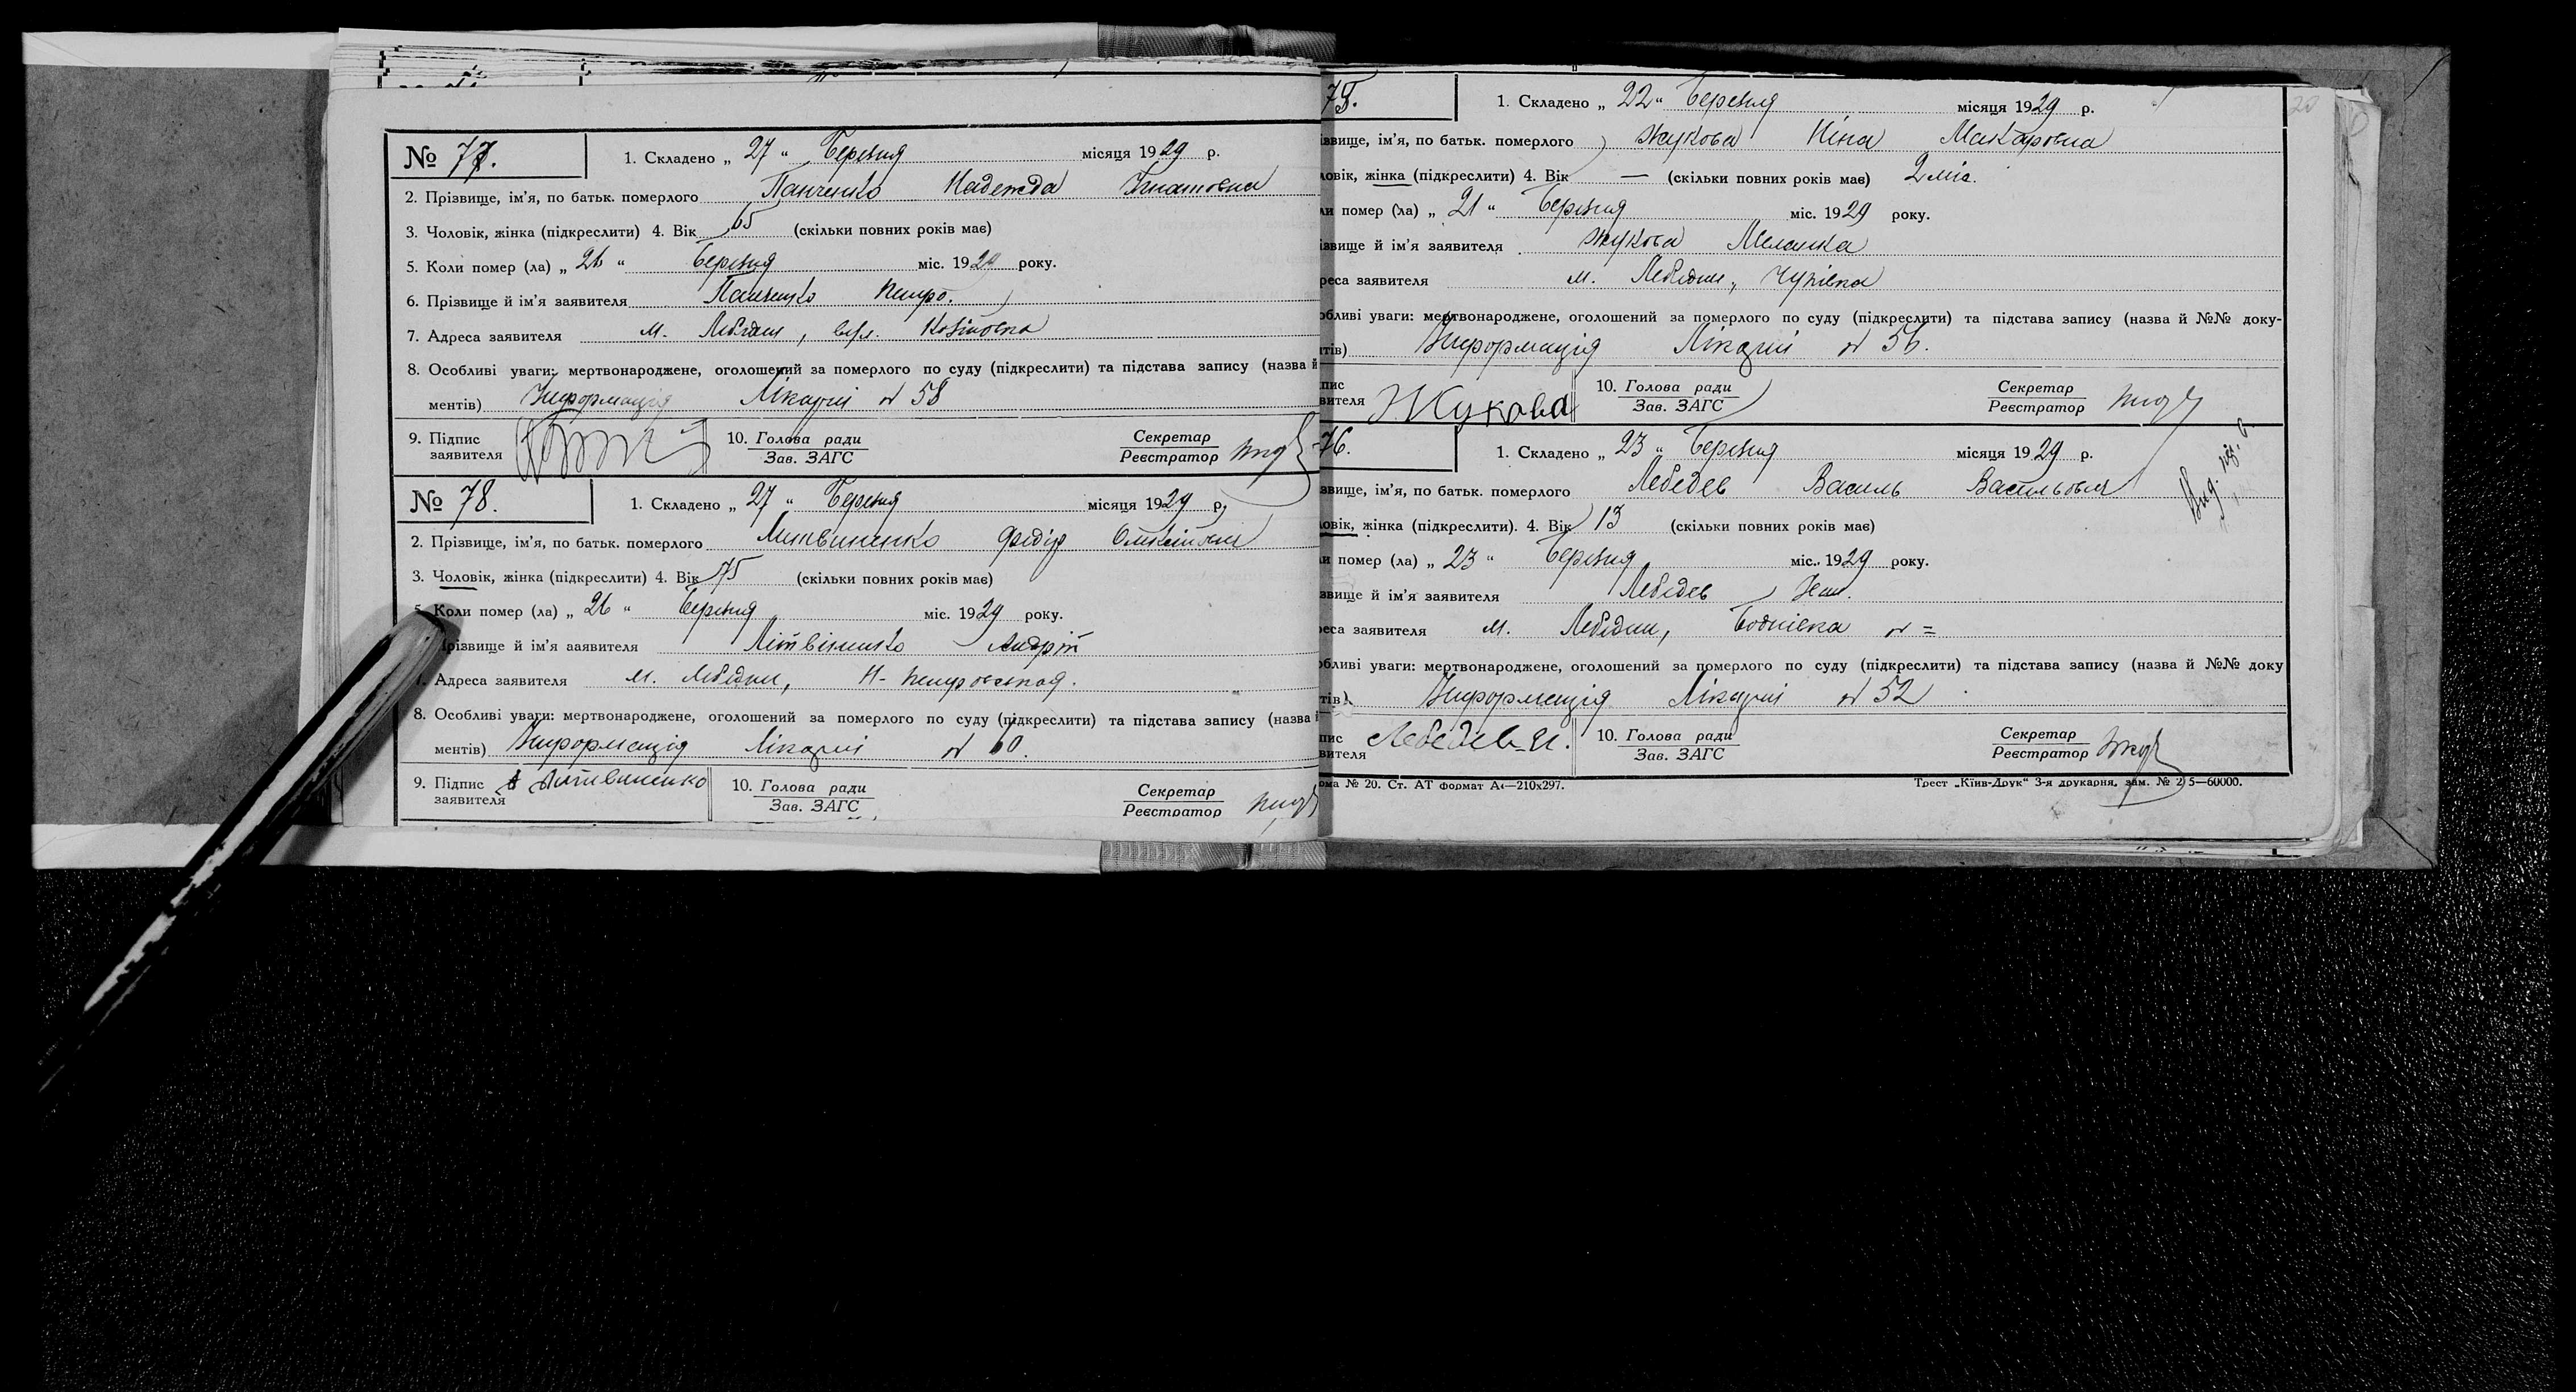 № 77.
1. Складено „ 27 “ Березня місяця 1929 р.
2. Прізвище, ім'я, по батьк. померлого Панченко Надежда Ігнатовна
3. Чоловік, жінка (підкреслити) 4. Вік 65 (скільки повних років має)
5. Коли помер (ла) „ 26 “ Березня міс. 1929 року.
6. Прізвище й ім'я заявителя Панченко Петро.
7. Адреса заявителя м. Лебедин, вул.
8. Особливі уваги: мертвонароджене, оголошений за померлого по суду (підкреслити) та підстава запису (назва й
ментів) Інформація Лікарні № 58
9. Підпис
заявителя
10. Голова ради
Зав. ЗАГС
Секретар
Реєстратор
№ 78.
1. Складено „ 27 “ Березня місяця 1929 р.
2. Прізвище, ім'я, по батьк. померлого Литвиненко Федір
3. Чоловік, жінка (підкреслити) 4. Вік 75 (скільки повних років має)
5. Коли помер (ла) „ 26 “ Березня міс. 1929 року.
різвище й ім'я аявителя Літвіненко Андрій
Адреса заявителя м. Лебедин, Н-Петровська
8. Особливі уваги: мертвонароджене, оголошений за померлого по суду (підкреслити) та підстава запису (назва
ментів) Інформація лікарні № 60.
9. Підпис
заявителя
А Литвиненко
10. Голова ради
Зав. ЗАГС
Секретар
Реєстратор
75.
1. Складено „ 22 “ Березня місяця 1929 р.
звище, ім'я, по батьк. померлого Жукова Ніна Макаровна
ловік, жінка (підкреслити) 4. Вік — (скільки повних років має) 2 міс.
ли помер (ла) „ 21 “ Березня міс. 1929 року.
звище й ім'я заявителя Жукова Меланка
реса заявителя м. Лебедин, Чупівка
обливі уваги: мертвонароджене, оголошений за померлого по суду (підкреслити) та підстава запису (назва й №№ доку-
тів) Інформація Лікарні № 56.
пис
вителя
Жукова
10. Голова ради
Зав. ЗАГС
Секретар
Реєстратор
76.
1. Складено „ 23 “ Березня місяця 1929 р.
звище, ім'я, по батьк. померлого Лебедев Василь Васильович
ловік, жінка (підкреслити). 4. Вік 13 (скільки повних років має)
и помер (ла) „ 23 “ Березня міс. 1929 року.
звище й ім'я заявителя Лебедев
реса заявителя м. Лебедин, № =
обливі уваги: мертвонароджене, оголошений за померлого по суду (підкреслити) та підстава запису (назва й №№ доку
тів) Інформація Лікарні № 52
пис
вителя
Лебедев
10. Голова ради
Зав. ЗАГС
Секретар
Реєстратор
ома № 20. Ст. АТ формат А4—210х297.
Трест „Київ-Друк“ 3-я друкарня, зам. № 2 5—60000.